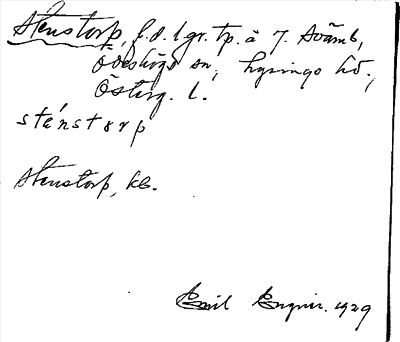 Stenstorp, f.d. lgr. tp. å 7. Svämb,
Ödeshögs sn, Lysings hd.,
Österg. l.
sténstorp
Stenstorp, kb.
Emil Engner. 1929